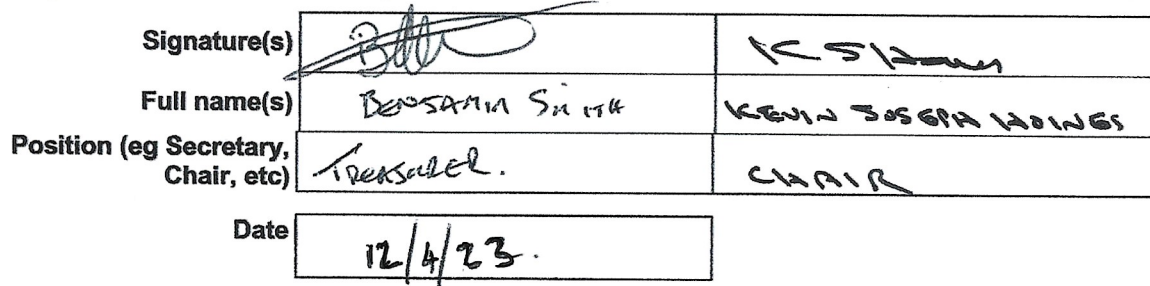 Signature(s)
Full name(s) BENJAMIN SMITH KEVIN JOSEPH
Position (eg Secretary,
Chair, etc) TREASURER. CHAIR
Date 12/4/23.